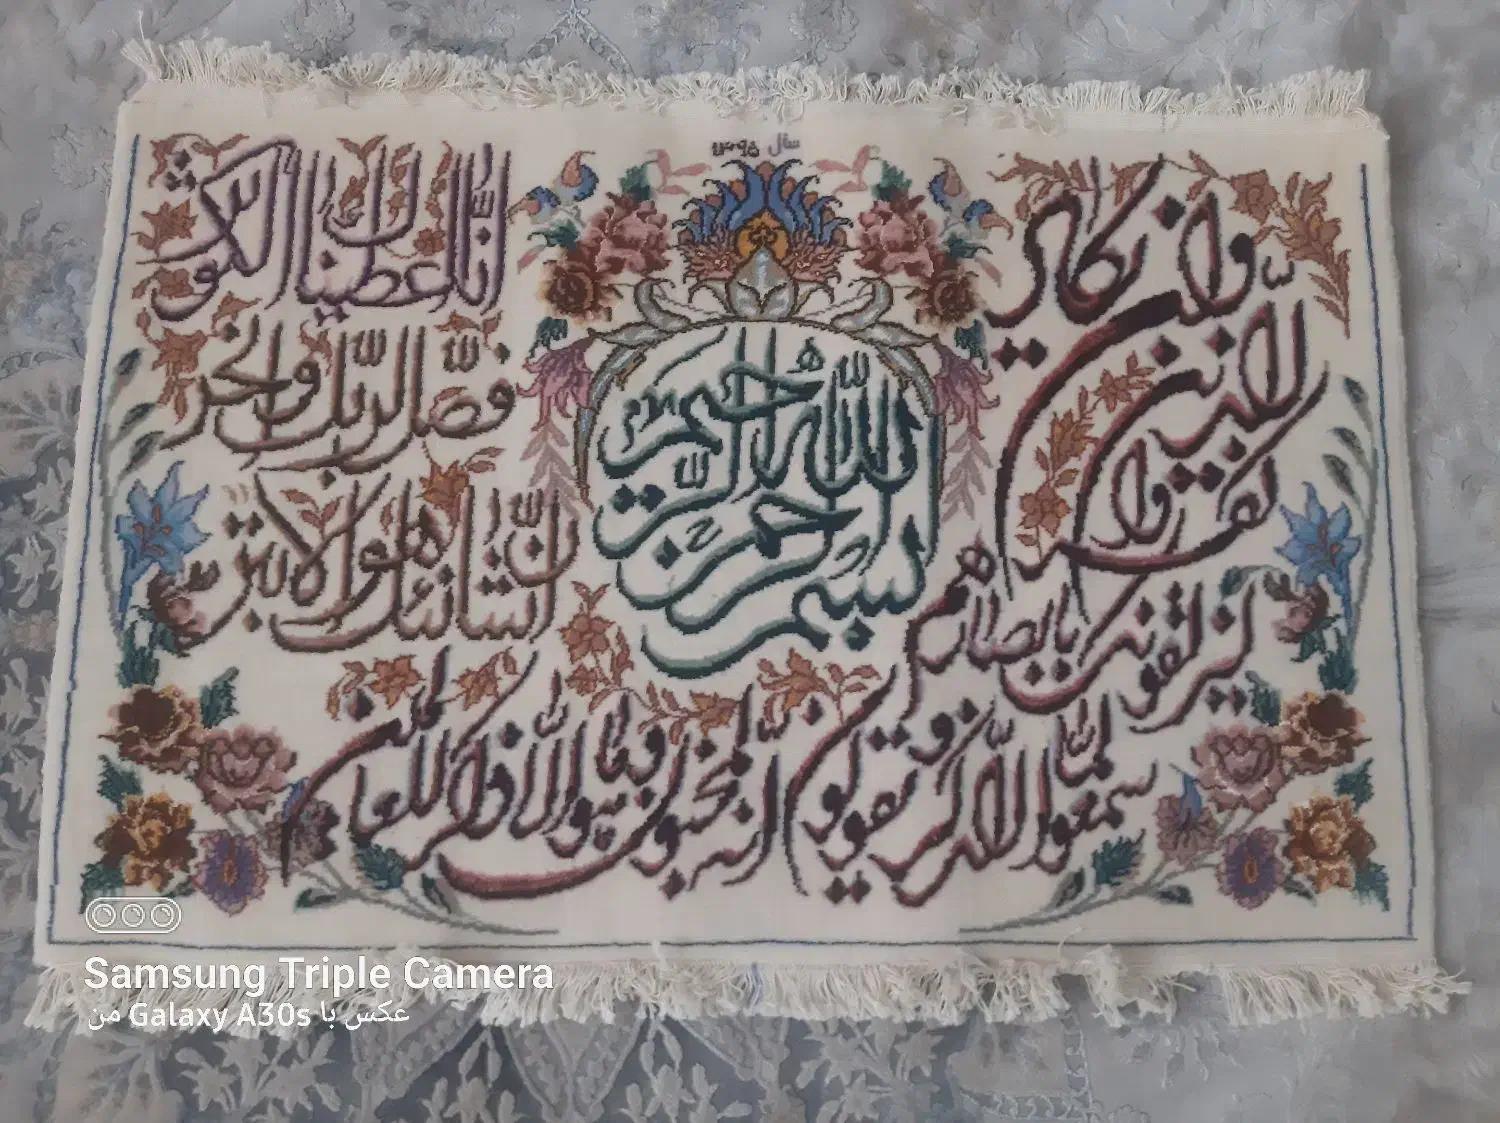 سال ۱۳۹۵
بسم الله الرحمن الرحیم
وان یکاد
الذین
کفروا
لیزلقونک بابصارهم
لما سمعوا الذکر و یقولون
انه لمجنون و ما هو الا ذکر للعالمین
انا اعطیناک الکوثر
فصل لربک وانحر
ان شانئک هو الابتر
Samsung Triple Camera
عکس با Galaxy A30s من